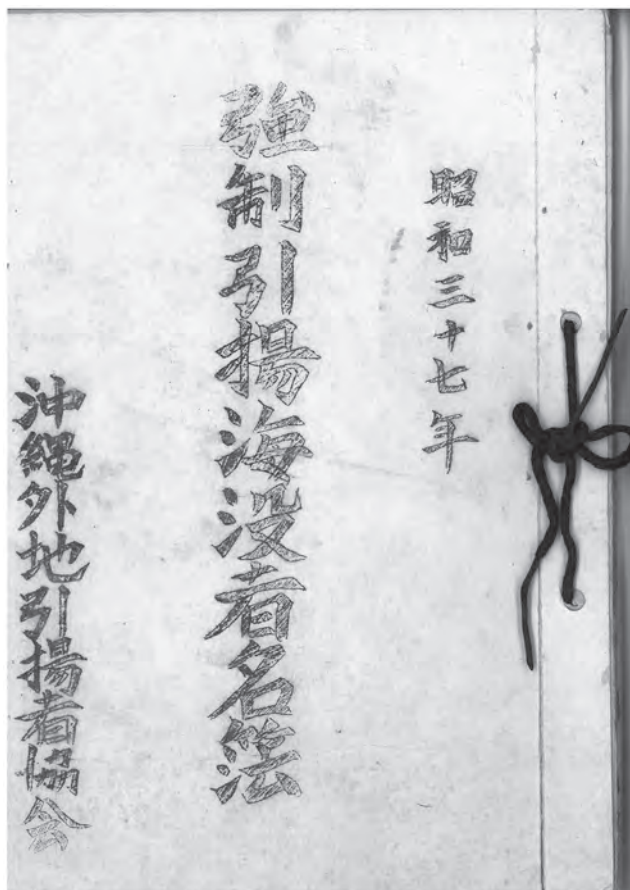 昭和三十七年
強制引揚海没者名簿
沖縄外地引揚者協会